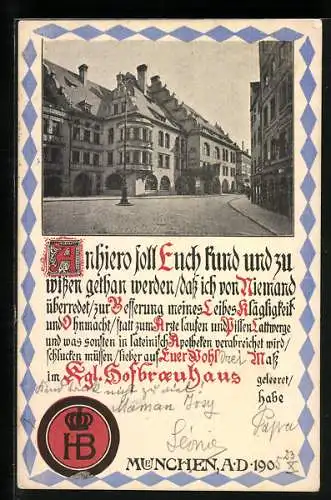 Anhiero soll Euch kund und zu
wißen gethan werden / daß ich von Niemand
überredet / zur Besserung meines Leibes Kläglichkeit
und Ohnmacht / statt zum Arzte laufen und Pillen Lattwerge
und was sonsten in lateinisch Apotheken verabreicht wird /
schlucken müssen / lieber auf Euer Wohl drei Maß
im Kgl. Hofbræuhaus geleeret /
habe
Maman Josy
Papa
Léonie
HB
MÜNCHEN, A.D. 190
23
X